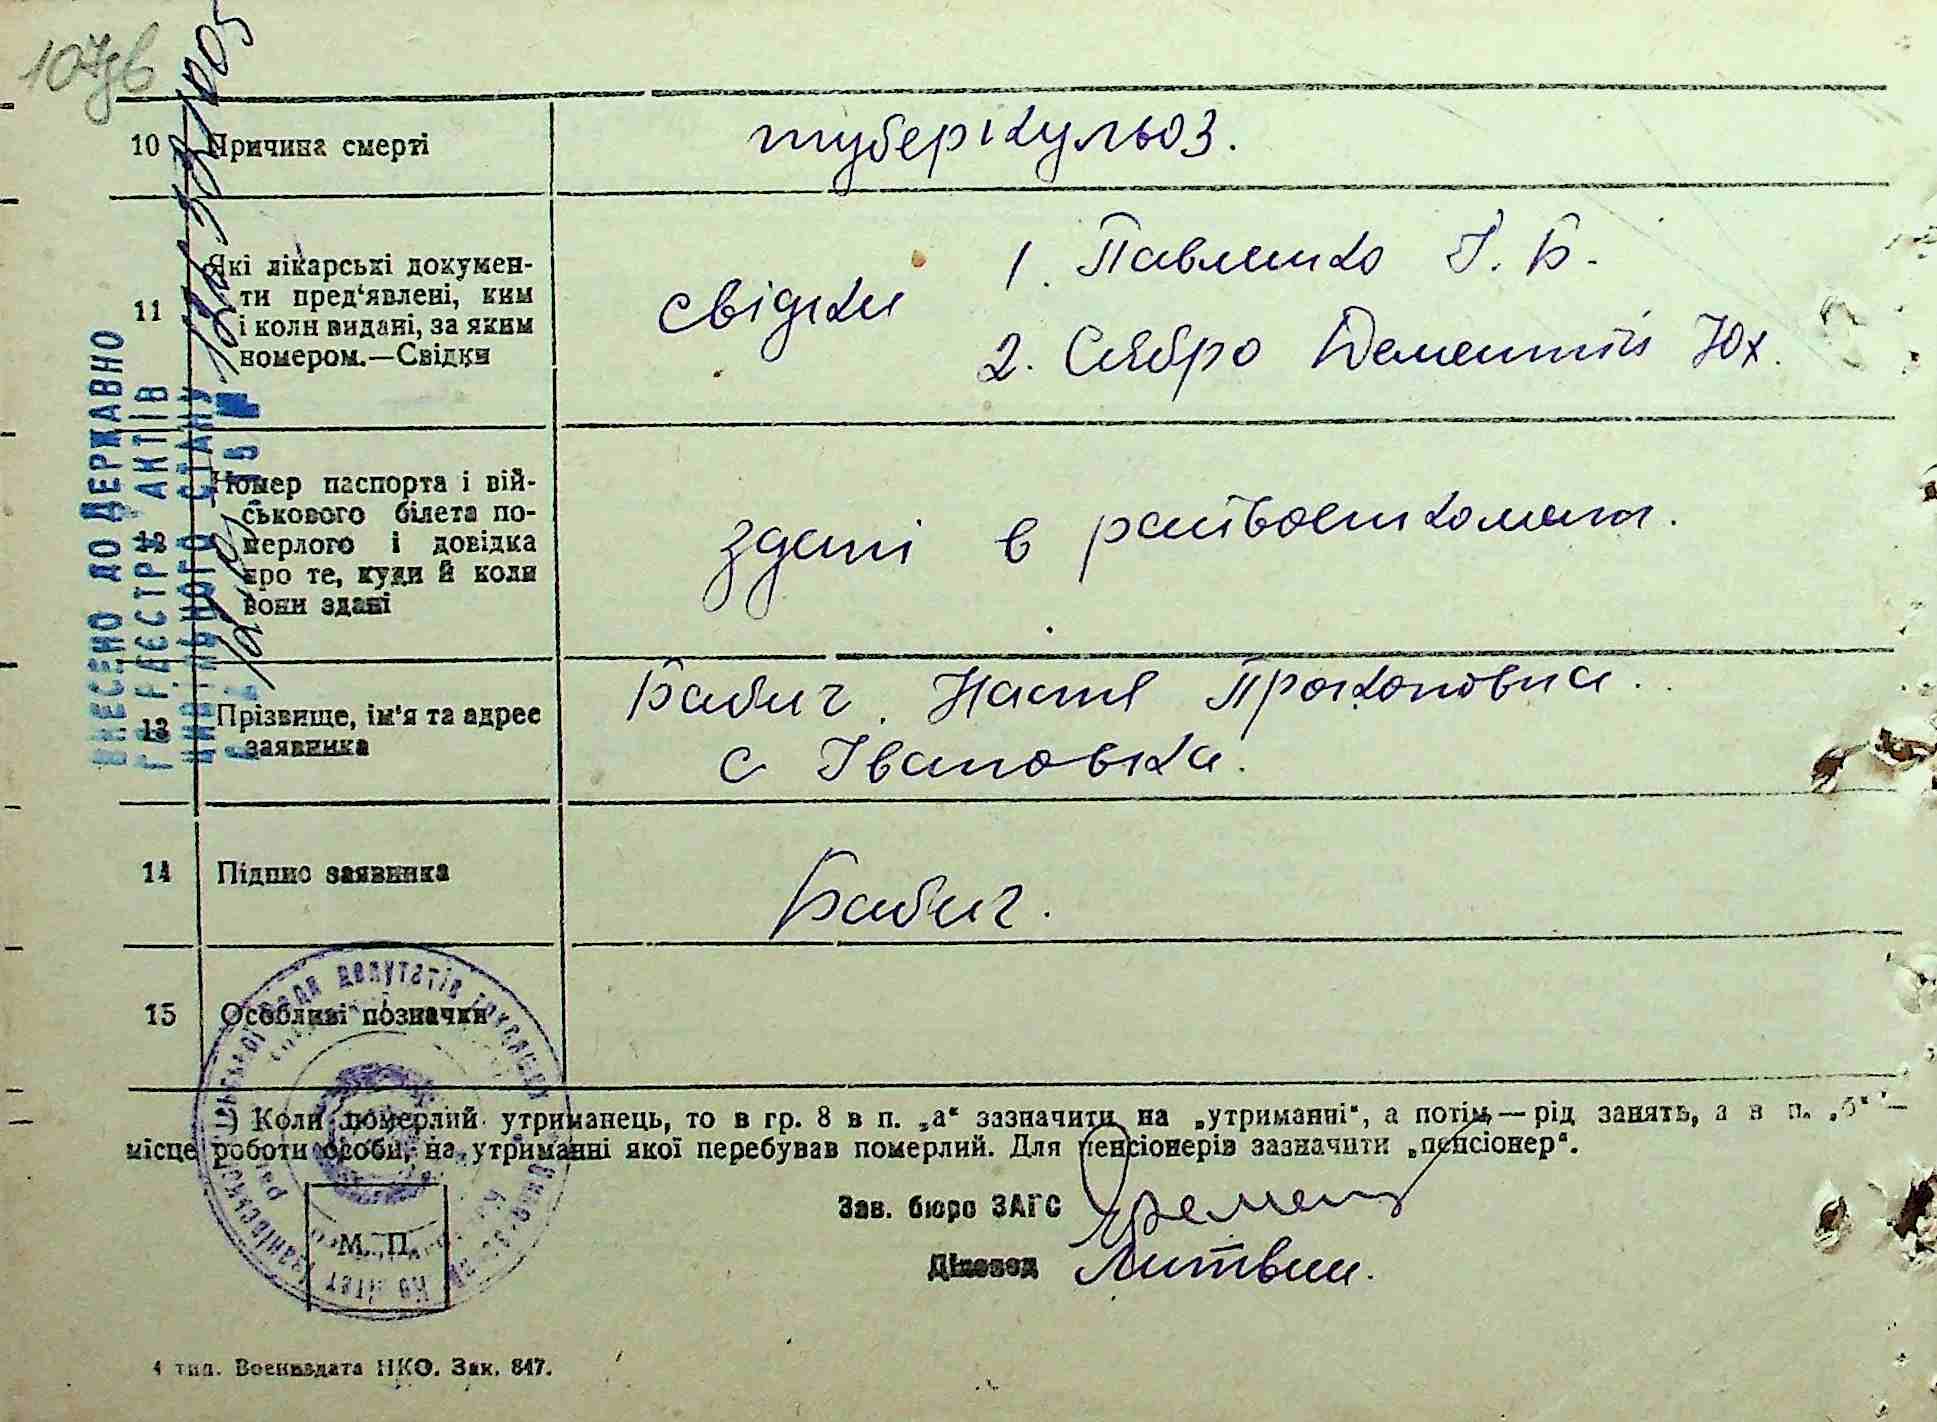 107зв
10 Причина смерті
туберікульоз.
11 Які лікарські докумен-
ти пред'явлені, ким
і коли видані, за яким
номером.—Свідки
свідки
1. Павленко І. Б.
2. Сябро Дементій Юх.
12 Номер паспорта і вій-
ськового білета по-
мерлого і довідка
про те, куди й коли
вони здані
здані в райвоенкомат.
13 Прізвище, ім'я та адрес
заявника
Бабич Настя Прокоповна.
с Івановка.
14 Підпис заявника
Бабич.
15 Особливі позначки
ВНЕСЕНО ДО ДЕРЖАВНО
ГО РЕЄСТРУ АКТІВ
ЦИВІЛЬНОГО СТАНУ
) Коли померлий утриманець, то в гр. 8 в п. „а“ зазначити на „утриманні“, а потім — рід занять, а в п. „б“ —
місце роботи особи, на утриманні якої перебував померлий. Для пенсіонерів зазначити „пенсіонер“.
Зав. бюро ЗАГС
Діловод Литвин.
М. П.
4 тип. Воениздата НКО. Зак. 847.